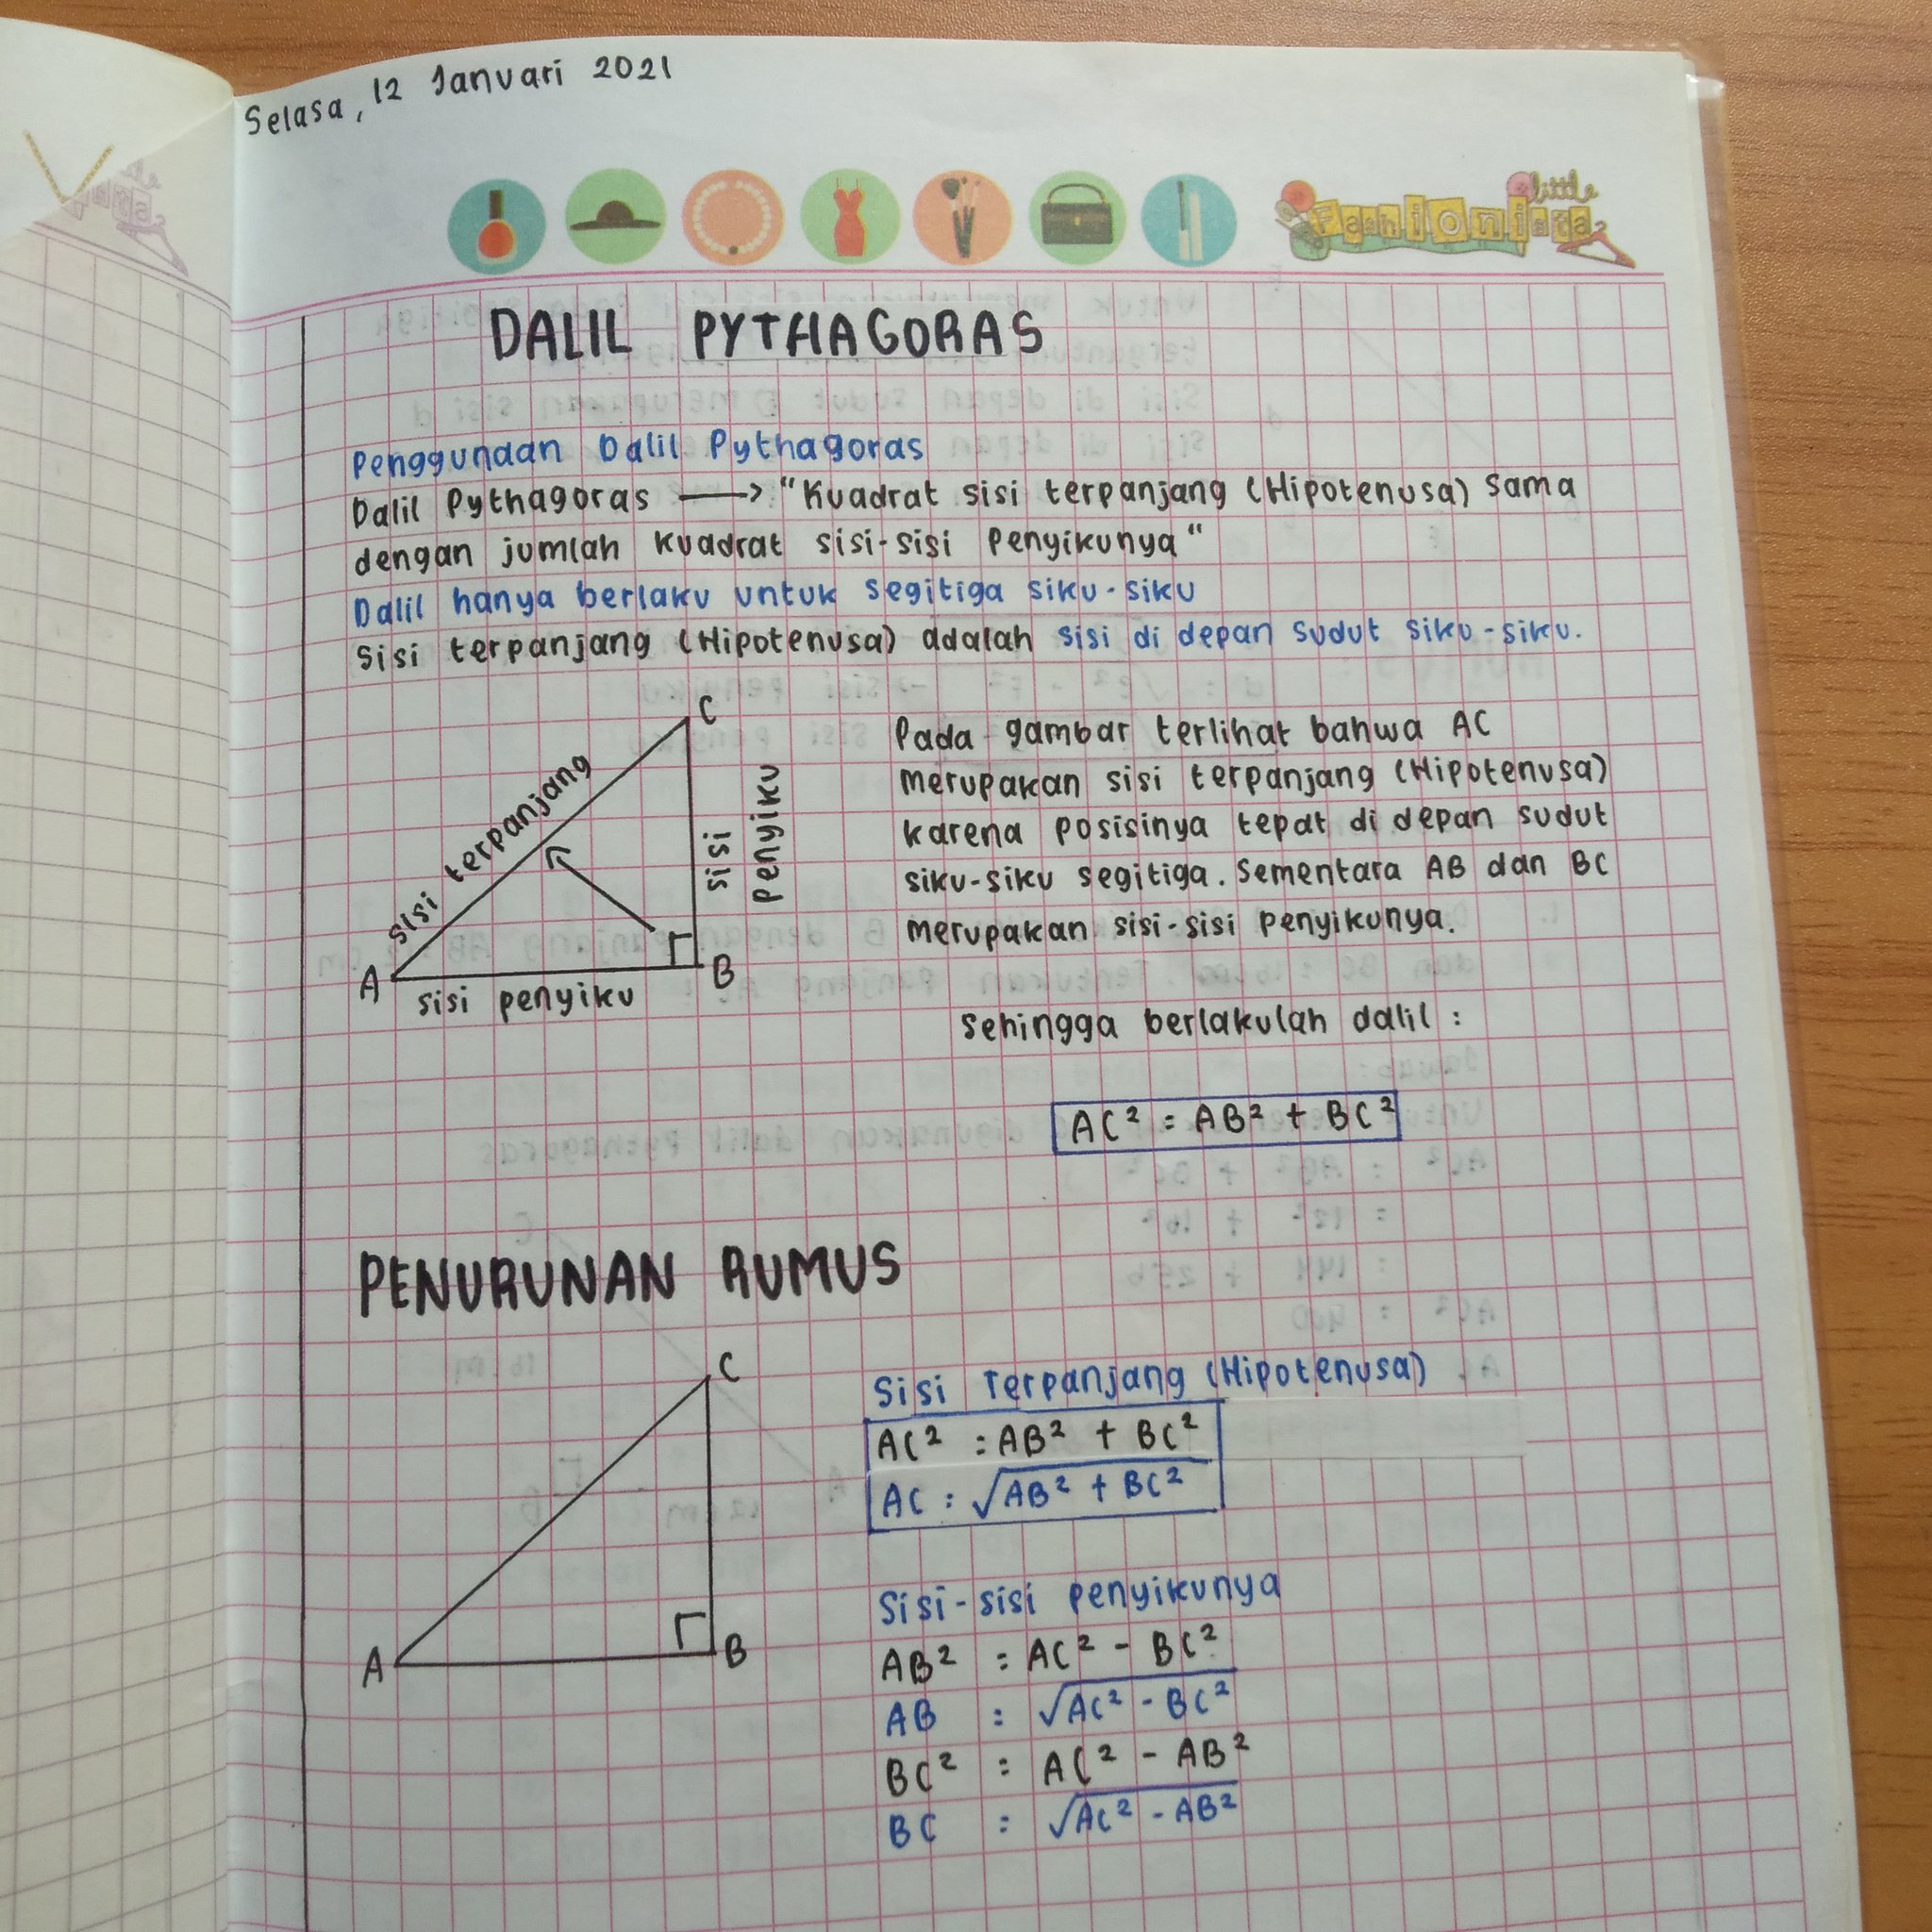 Selasa, 12 Januari 2021
little
Fashionista
DALIL PYTHAGORAS
Penggunaan Dalil Pythagoras
Dalil Pythagoras → "Kuadrat sisi terpanjang (Hipotenusa) sama
dengan jumlah kuadrat sisi-sisi Penyikunya"
Dalil hanya berlaku untuk segitiga siku-siku
Sisi terpanjang (Hipotenusa) adalah sisi di depan sudut siku-siku.
C
sisi terpanjang
sisi
penyiku
A
B
sisi penyiku
Pada gambar terlihat bahwa AC
merupakan sisi terpanjang (Hipotenusa)
karena posisinya tepat di depan sudut
siku-siku segitiga. Sementara AB dan BC
merupakan sisi-sisi penyikunya.
sehingga berlakulah dalil :
AC² = AB² + BC²
PENURUNAN RUMUS
C
A
B
Sisi Terpanjang (Hipotenusa)
AC² = AB² + BC²
AC = √AB² + BC²
Sisi-sisi penyikunya
AB² = AC² - BC²
AB = √AC² - BC²
BC² = AC² - AB²
BC = √AC² - AB²